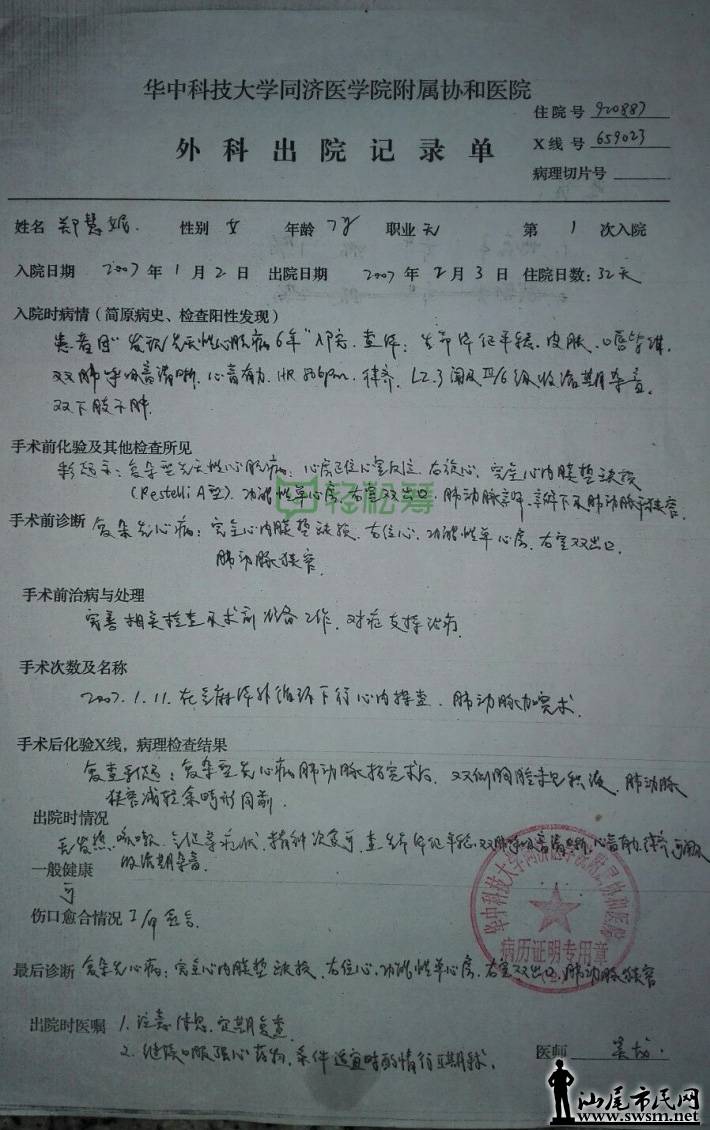 华中科技大学同济医学院附属协和医院
住院号 920887
外科出院记录单
X线号 659023
病理切片号
姓名 郑慧娟 性别 女 年龄 7岁 职业 无 第 1 次入院
入院日期 2007年1月2日 出院日期 2007年2月3日 住院日数:32天
入院时病情(简原病史、检查阳性发现)
患者因“发现先天性心脏病6年”入院.查体:生命体征平稳.皮肤、口唇
双肺呼吸音清晰.心音有力.HR 86bpm.律齐.L2.3闻及Ⅲ/6级收缩期杂音.
双下肢不肿.
手术前化验及其他检查所见
彩超示:复杂型先天性心脏病:心房 心室反位.右旋心.完全心内膜垫缺损
(Rastelli A型).功能性单心房.右室双出口.肺动脉瓣、瓣下及肺动脉 狭窄.
轻松筹
手术前诊断 复杂先心病:完全心内膜垫缺损.右位心.功能性单心房.右室双出口.
肺动脉狭窄.
手术前治病与处理
完善相关检查及术前准备工作.对症支持治疗.
手术次数及名称
2007.1.11.在全麻体外循环下行心内探查.肺动脉 术.
手术后化验X线,病理检查结果
复查彩超:复杂型先心病肺动脉 术后.双侧胸腔未见积液.肺动脉
狭窄减轻余畸形同前.
出院时情况
无发热.咳嗽.气促等症状.精神次食可.查:生命体征平稳.双肺呼吸音清晰.心音有力.律齐.可闻及
收缩期杂音.
一般健康
可
伤口愈合情况 I/甲愈合.
华中科技大学同济医学院附属协和医院
病历证明专用章
最后诊断 复杂先心病:完全心内膜垫缺损.右位心.功能性单心房.右室双出口.肺动脉狭窄
出院时医嘱 1.注意休息.定期复查
2.继续口服强心药物.条件适宜时酌情行Ⅱ期手术.
医师
汕尾市民网
www.swsm.net